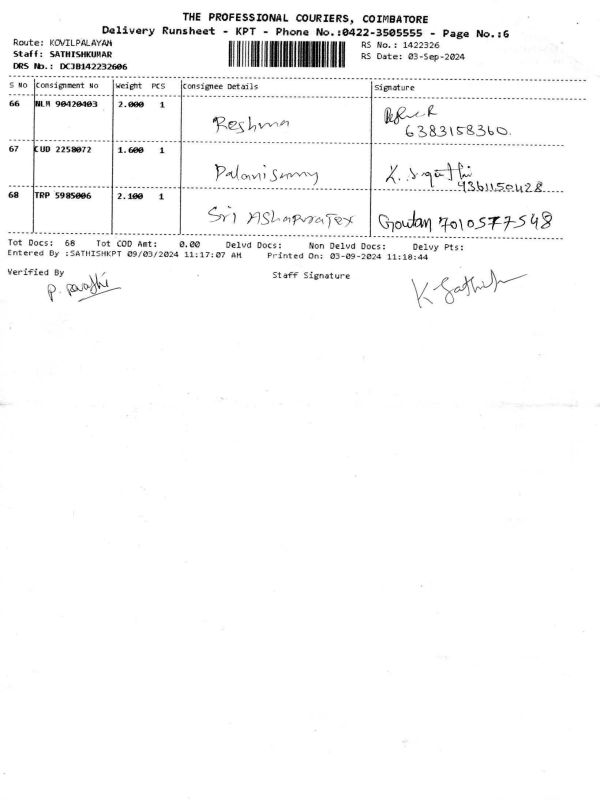 THE PROFESSIONAL COURIERS, COIMBATORE
Delivery Runsheet - KPT - Phone No.:0422-3505555 - Page No.:6
Route: KOVILPALAYAM
Staff: SATHISHKUMAR
DRS No.: DCJB142232606
RS No.: 1422326
RS Date: 03-Sep-2024
S No Consignment No Weight PCS Consignee Details Signature
66 NLM 90420403 2.000 1 Reshma
6383158360.
67 CUD 2258072 1.600 1 Palanisamy K.
9361150428
68 TRP 5985006 2.100 1 Sri AshapuraTex Goutam 7010577548
Tot Docs: 68 Tot COD Amt: 0.00 Delvd Docs: Non Delvd Docs: Delvy Pts:
Entered By :SATHISHKPT 09/03/2024 11:17:07 AM Printed On: 03-09-2024 11:18:44
Verified By Staff Signature
P. K Sathish